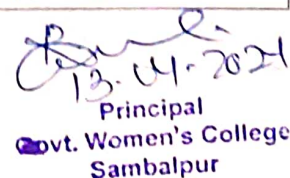 13-04-2021
Principal
Govt. Women's College
Sambalpur